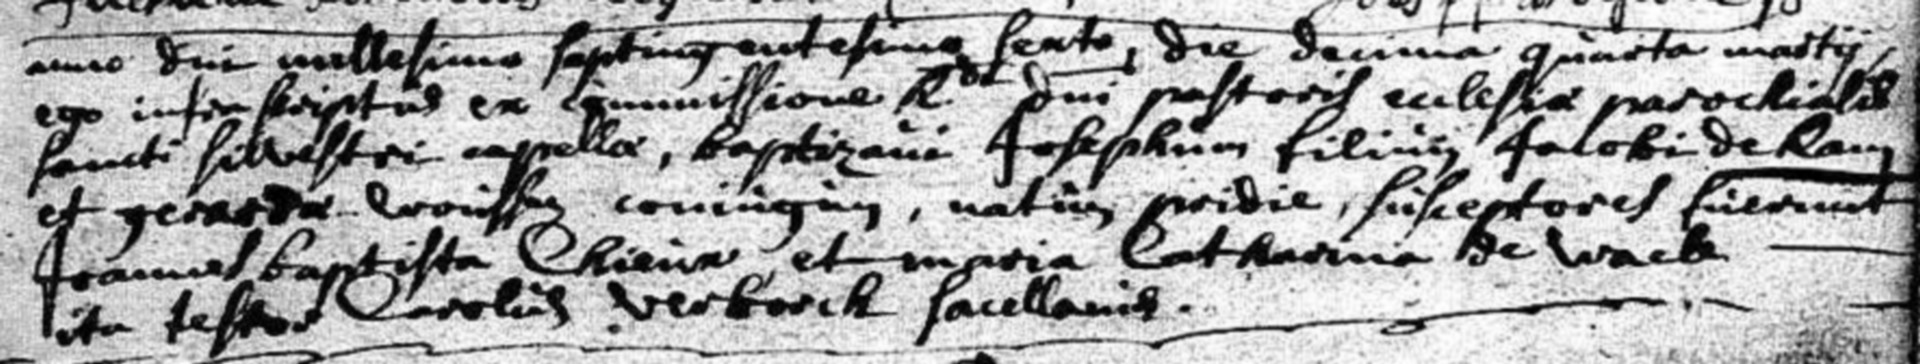 anno dni millesimo septingentesimo sexto, die decima quarta martij,
ego infrascriptus ex commissione R.di dni pastoris ecclesiæ parochialis
sancti silvestri cappellæ, baptizavi Josephum filium Jacobi de Kam
et gerardæ coniugum, natum pridie, susceptores fuerunt
Joannes baptista et maria Catharina de waele
ita testor Carolus verborck sacellanus.